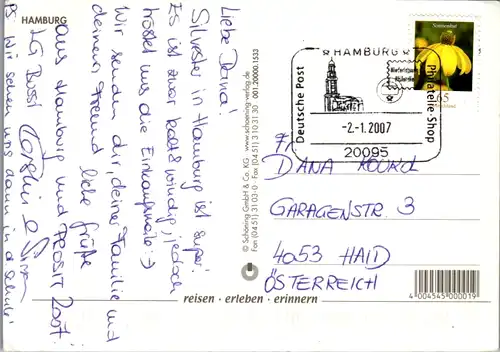 HAMBURG
Liebe Dana!
Silvester in Hamburg ist super!
Es ist zwar kalt & windig, jedoch
tröstet uns die Einkaufsmeile :-)
Wir senden dir, deiner Familie und
deinem Freund liebe Grüße
aus Hamburg und PROSIT 2007!
LG Bussi
PS Wir sehen uns dann in d. Schule!
© Schöning GmbH & Co. KG · www.schoening-verlag.de
Fon (04 51) 31 03-0 · Fax (04 51) 3 10 31 30 001.20000.1533
HAMBURG
Deutsche Post
Philatelie-Shop
-2-1.2007
20095
Sonnenhut
65
DANA
GARAGENSTR. 3
4053 HAID
ÖSTERREICH
reisen · erleben · erinnern
4 004545 000019